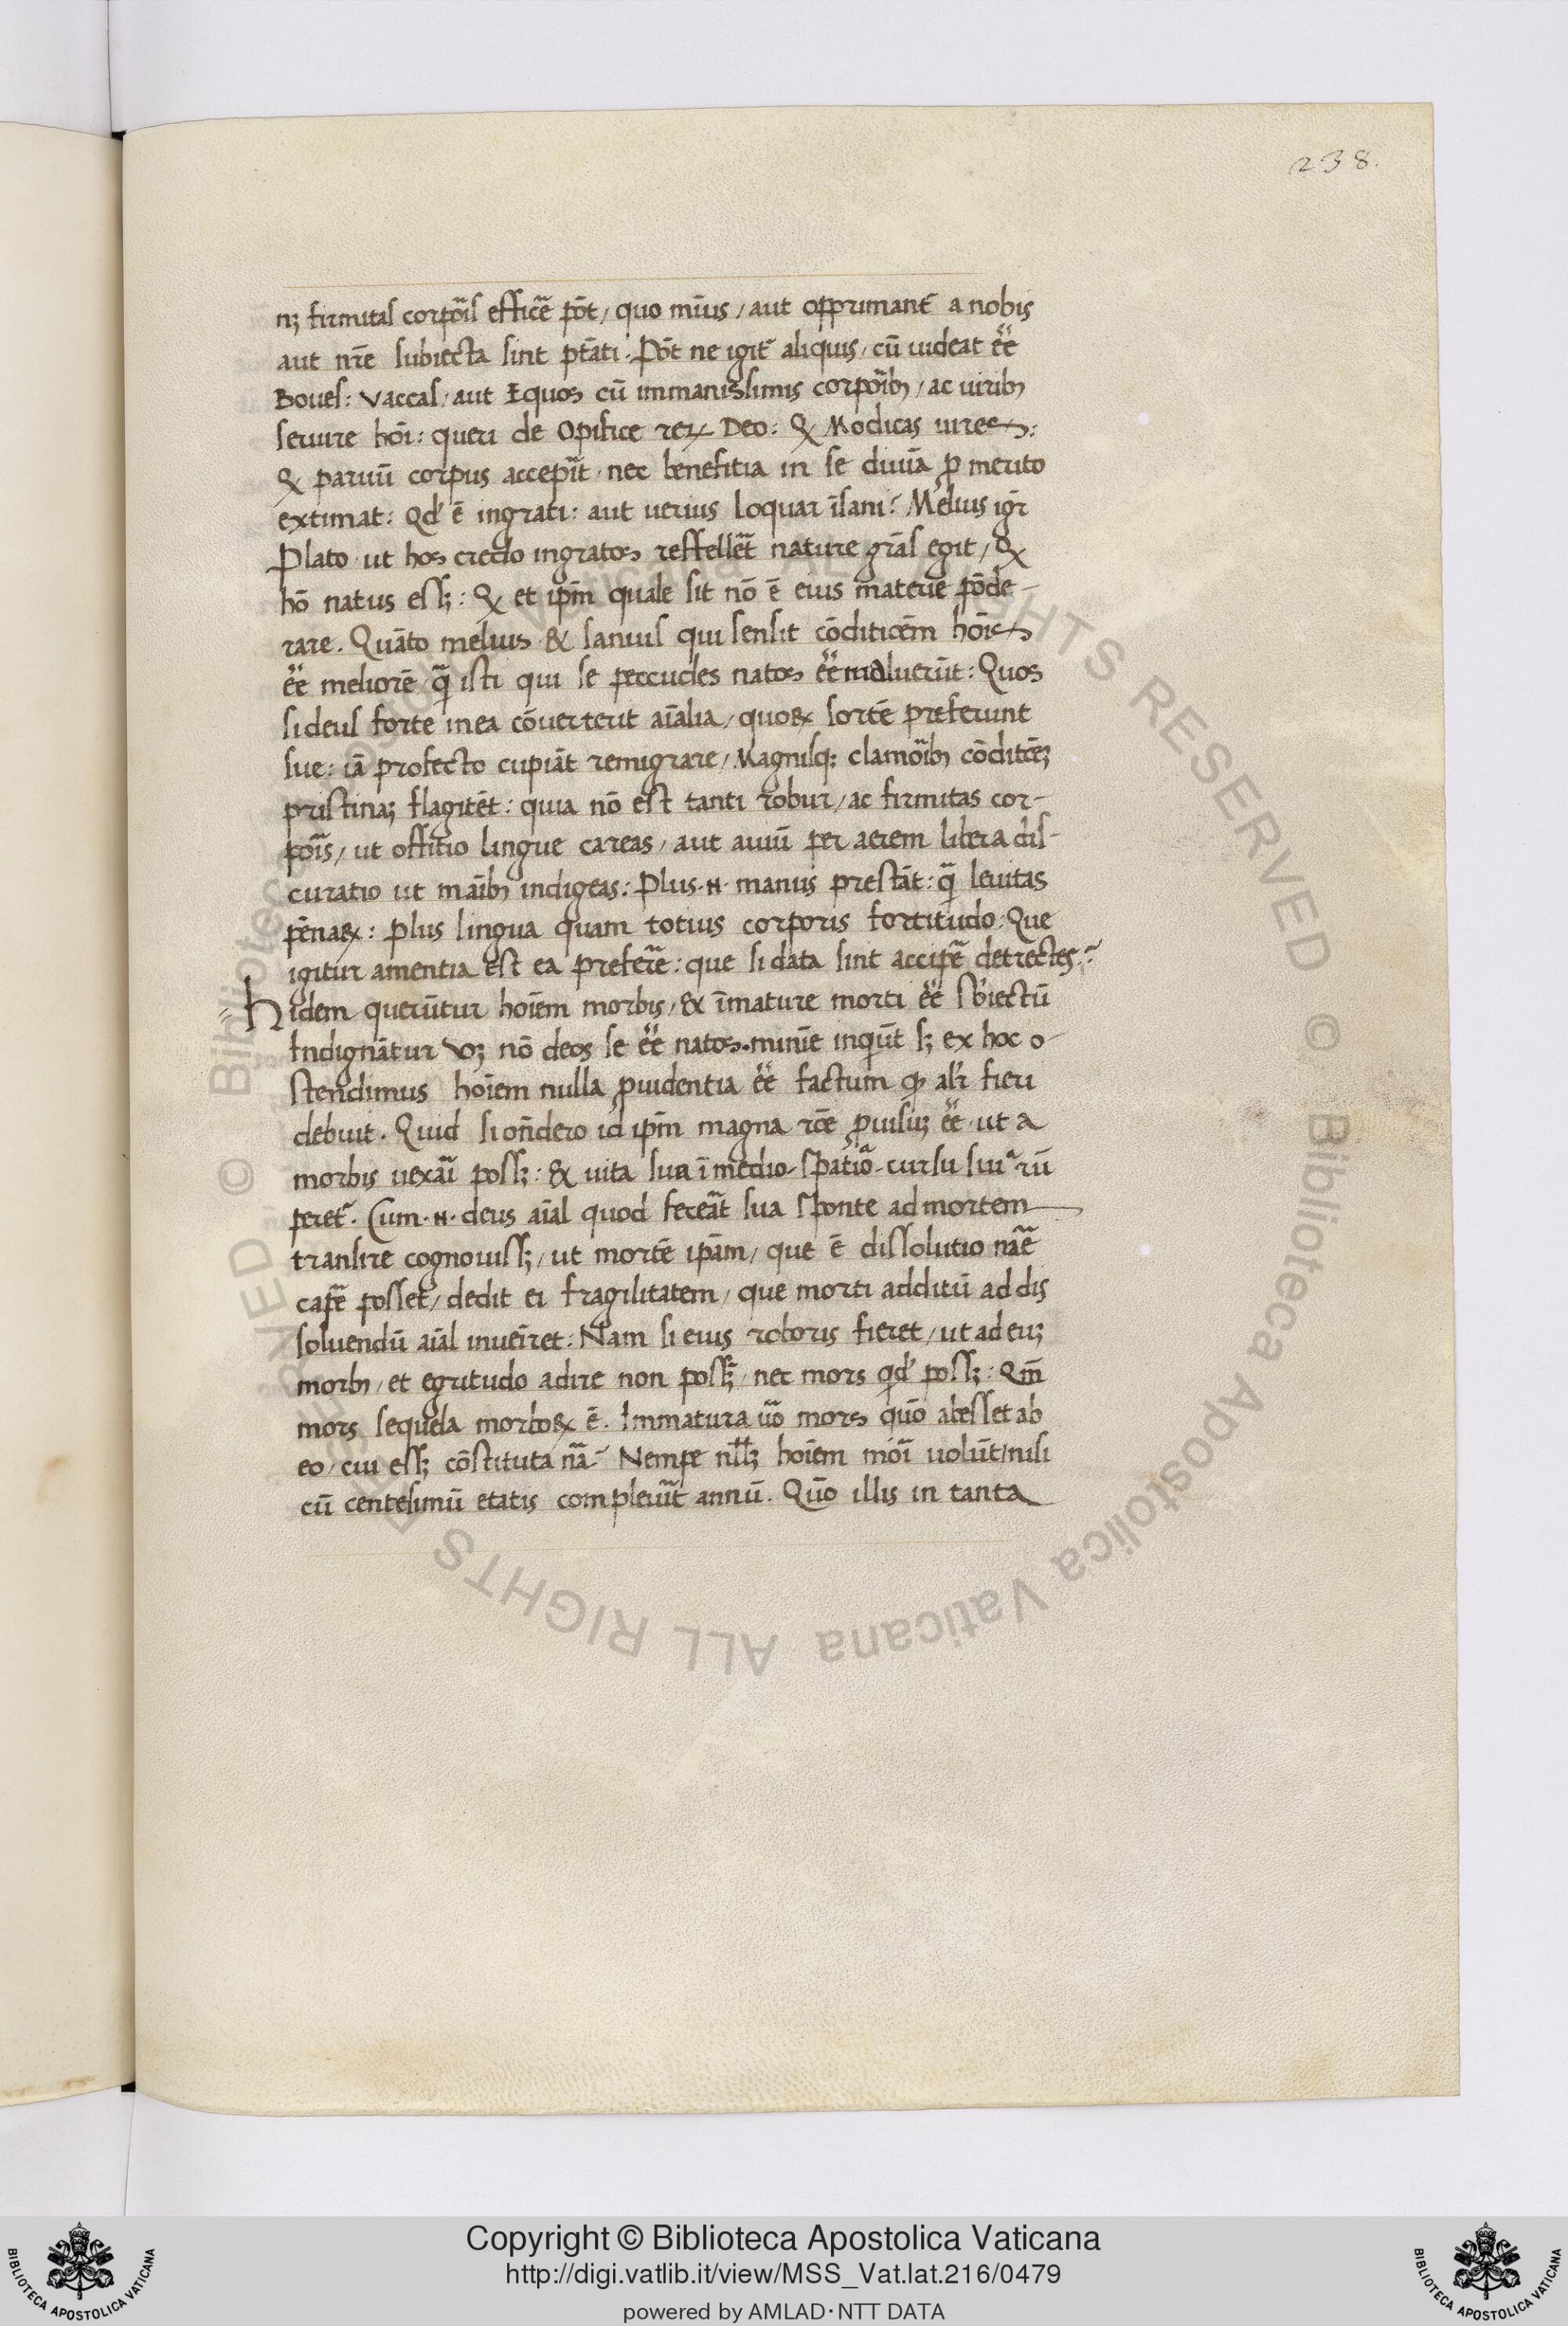 238.
nꝫ firmitas corꝑõis efficẽ põt / quo mĩus / aut opprimant̃ a nobis
aut nr̃e subiecta sint ptãti. Põt ne igit̃ aliquis / cũ uideat ẽẽ
Boues: Vaccas / aut Equos cũ immanissimis corpõibꝫ / ac uiribꝫ
seruire hõi: queri de Opifice reꝝ Deo: ꝙ Modicas uires:
ꝙ paruũ corpus accepĩt / nec benefitia in se diuĩa ꝓ merito
extimat: Qđ ẽ ingrati: aut uerius loquar ĩsani? Melius igr̃
Plato ut hos credo ingratos reffellẽt nature grãs egit / ꝙ
hõ natus essꝫ: ꝙ et ip̃m quale sit nõ ẽ eius materie põde-
rare. Quãto melius & sanius qui sensit cõditiõem hõis
ẽẽ meliorẽ q̃ isti qui se peccudes natos ẽẽ maluerũt: Quos
si deus forte in ea cõuerterit aĩalia / quoꝝ sortẽ preferunt
sue: iã profecto cupiãt remigrare / Magnisqꝫ clamõibꝫ cõditõeꝫ
pristinaꝫ flagitẽt: quia nõ est tanti robur / ac firmitas cor-
põis / ut offitio lingue careas / aut auiũ per aerem libera dis-
curatio ut mãibꝫ indigeas: Plus .n. manus prestãt: q̃ leuitas
pẽnaꝝ: plus lingua quam totius corporis fortitudo. Que
igitur amentia est ea preferẽ: que si data sint accipẽ detrectes?
hidem querũtur hoĩem morbis / & ĩmature morti ẽẽ sb̃iectũ
Indignãtur uꝫ nõ deos se ẽẽ natos. minĩe inqiũt sꝫ ex hoc o-
stendimus hoĩem nulla ꝓuidentia ẽẽ factum ꝙ alr̃ fieri
debuit. Quid si oñdero id ip̃m magna rõe ꝓuisuꝫ ẽẽ ut a
morbis uexãi possꝫ: & uita sua ĩ medio spatio cursu sui rũ
peret̃. Cum .n. deus aĩal quod fecẽat sua sponte ad mortem
transire cognouissꝫ / ut mortẽ ip̃am / que ẽ dissolutio nãe
capẽ posset / dedit ei fragilitatem / que morti additũ ad dis
soluendũ aĩal inueĩret: Nam si eius roboris fieret / ut ad euꝫ
morbꝫ / et egritudo adire non possꝫ / nec mors qđ possꝫ: Qm̃
mors sequela morboꝝ ẽ. Immatura uõ mors quõ abesset ab
eo / cui essꝫ cõstituta nã? Nempe nll̃ꝫ hoĩem mõi uolũt / nisi
cũ centesimũ etatis compleuĩt annũ. Quõ illis in tanta
Copyright © Biblioteca Apostolica Vaticana
http://digi.vatlib.it/view/MSS_Vat.lat.216/0479
powered by AMLAD·NTT DATA